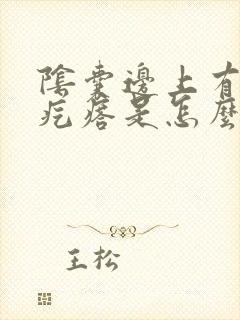 陰囊邊上有
疙瘩是怎麼
王松